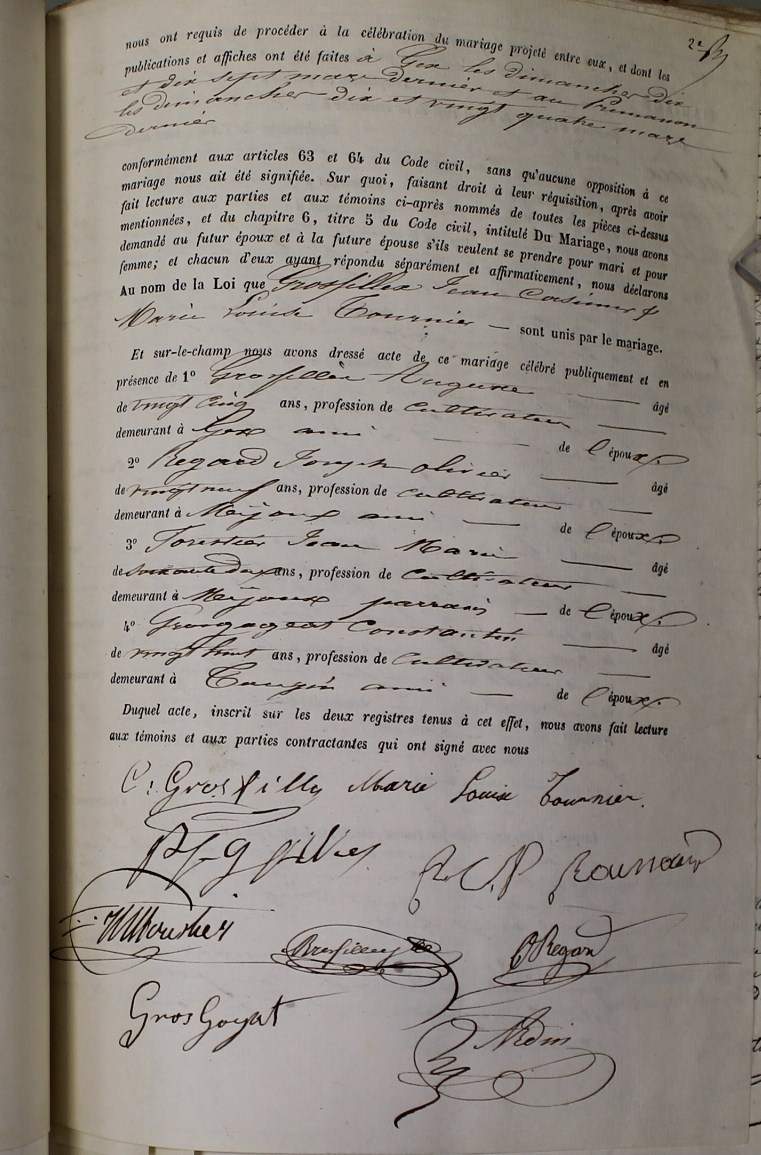 nous ont requis de procéder à la célébration du mariage projeté entre eux, et dont les
publications et affiches ont été faites à Gex les dimanches dix
et dix sept mars dernier et au Prémanon
les dimanches dix et vingt quatre mars
dernier
conformément aux articles 63 et 64 du Code civil, sans qu'aucune opposition à ce
mariage nous ait été signifiée. Sur quoi, faisant droit à leur réquisition, après avoir
fait lecture aux parties et aux témoins ci-après nommés de toutes les pièces ci-dessus
mentionnées, et du chapitre 6, titre 5 du Code civil, intitulé Du Mariage, nous avons
demandé au futur époux et à la future épouse s'ils veulent se prendre pour mari et pour
femme; et chacun d'eux ayant répondu séparément et affirmativement, nous déclarons
Au nom de la Loi que Grosfillex Jean Casimir &
Marie Louise Tournier — sont unis par le mariage.
Et sur-le-champ nous avons dressé acte de ce mariage célébré publiquement et en
présence de 1° Grosfillex Auguste — âgé
de vingt cinq ans, profession de cultivateur —
demeurant à Gex ami — de l'époux.
2° Regard Joseph olivier — âgé
de vingt neuf ans, profession de cultivateur —
demeurant à Mijoux ami — de l'époux.
3° Forestier Jean Marie — âgé
de soixante deux ans, profession de cultivateur —
demeurant à Mijoux parrain — de l'époux.
4° Grosgogeat Constantin — âgé
de vingt huit ans, profession de cultivateur —
demeurant à Tougin ami — de l'époux.
Duquel acte, inscrit sur les deux registres tenus à cet effet, nous avons fait lecture
aux témoins et aux parties contractantes qui ont signé avec nous
C. Grosfilley Marie Louise Tournier.
Regard